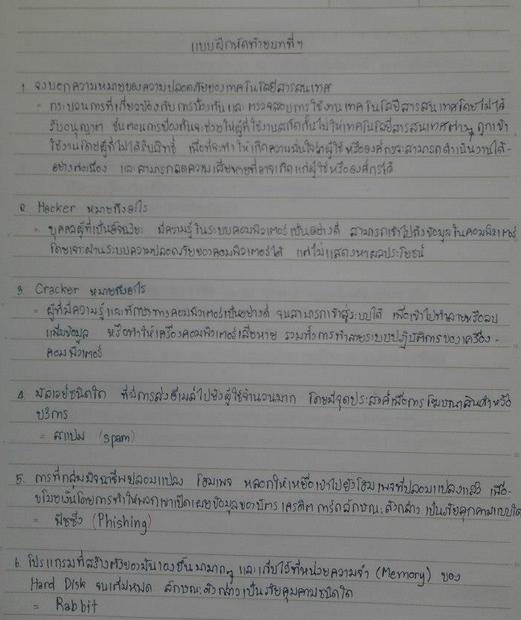 แบบฝึกหัดท้ายบทที่ 9
1. จงบอกความหมายของความปลอดภัยของเทคโนโลยีสารสนเทศ
= กระบวนการที่เกี่ยวข้องกับการป้องกันและตรวจสอบการใช้งานเทคโนโลยีสารสนเทศโดยไม่ได้
รับอนุญาต ขั้นตอนการป้องกันจะช่วยให้ผู้ที่ใช้งานสกัดกั้นไม่ให้เทคโนโลยีสารสนเทศต่างๆ ถูกเข้า
ใช้งานโดยผู้ที่ไม่ได้รับสิทธิ์ เพื่อที่จะทำให้เกิดความมั่นใจว่าผู้ใช้หรือองค์กรจะสามารถดำเนินงานได้
อย่างต่อเนื่อง และสามารถลดความเสียหายที่อาจเกิดแก่ผู้ใช้หรือองค์กรได้
2. Hacker หมายถึงอะไร
= บุคคลผู้ที่เป็นอัจฉริยะ มีความรู้ในระบบคอมพิวเตอร์เป็นอย่างดี สามารถเข้าไปถึงข้อมูลในคอมพิวเตอร์
โดยเจาะผ่านระบบความปลอดภัยของคอมพิวเตอร์ได้ แต่ไม่แสวงหาผลประโยชน์
3. Cracker หมายถึงอะไร
= ผู้ที่มีความรู้และทักษะทางคอมพิวเตอร์เป็นอย่างดี จนสามารถเข้าสู่ระบบได้ เพื่อเข้าไปทำลายหรือลบ
แฟ้มข้อมูล หรือทำให้เครื่องคอมพิวเตอร์เสียหาย รวมทั้งการทำลายระบบปฏิบัติการของเครื่อง-
คอมพิวเตอร์
4. มัลแวร์ชนิดใด ที่มีการส่งอีเมล์ไปยังผู้ใช้จำนวนมาก โดยมีจุดประสงค์เพื่อการโฆษณาสินค้าหรือ
บริการ
= สแปม (spam)
5. การที่กลุ่มมิจฉาชีพปลอมแปลง โฮมเพจ หลอกให้เหยื่อเข้าไปยังโฮมเพจที่ปลอมแปลงแล้ว เพื่อ-
ขโมยเงินโดยการทำให้พวกเขาเปิดเผยข้อมูลของบัตรเครดิตการ์ดลักษณะดังกล่าว เป็นภัยคุกคามแบบใด
= ฟิชชิ่ง (Phishing)
6. โปรแกรมที่สร้างตัวของมันเองขึ้นมามากๆ และเก็บไว้ที่หน่วยความจำ (Memory) ของ
Hard Disk จนเต็มหมด ลักษณะดังกล่าวเป็นภัยคุมคามชนิดใด
= Rabbit